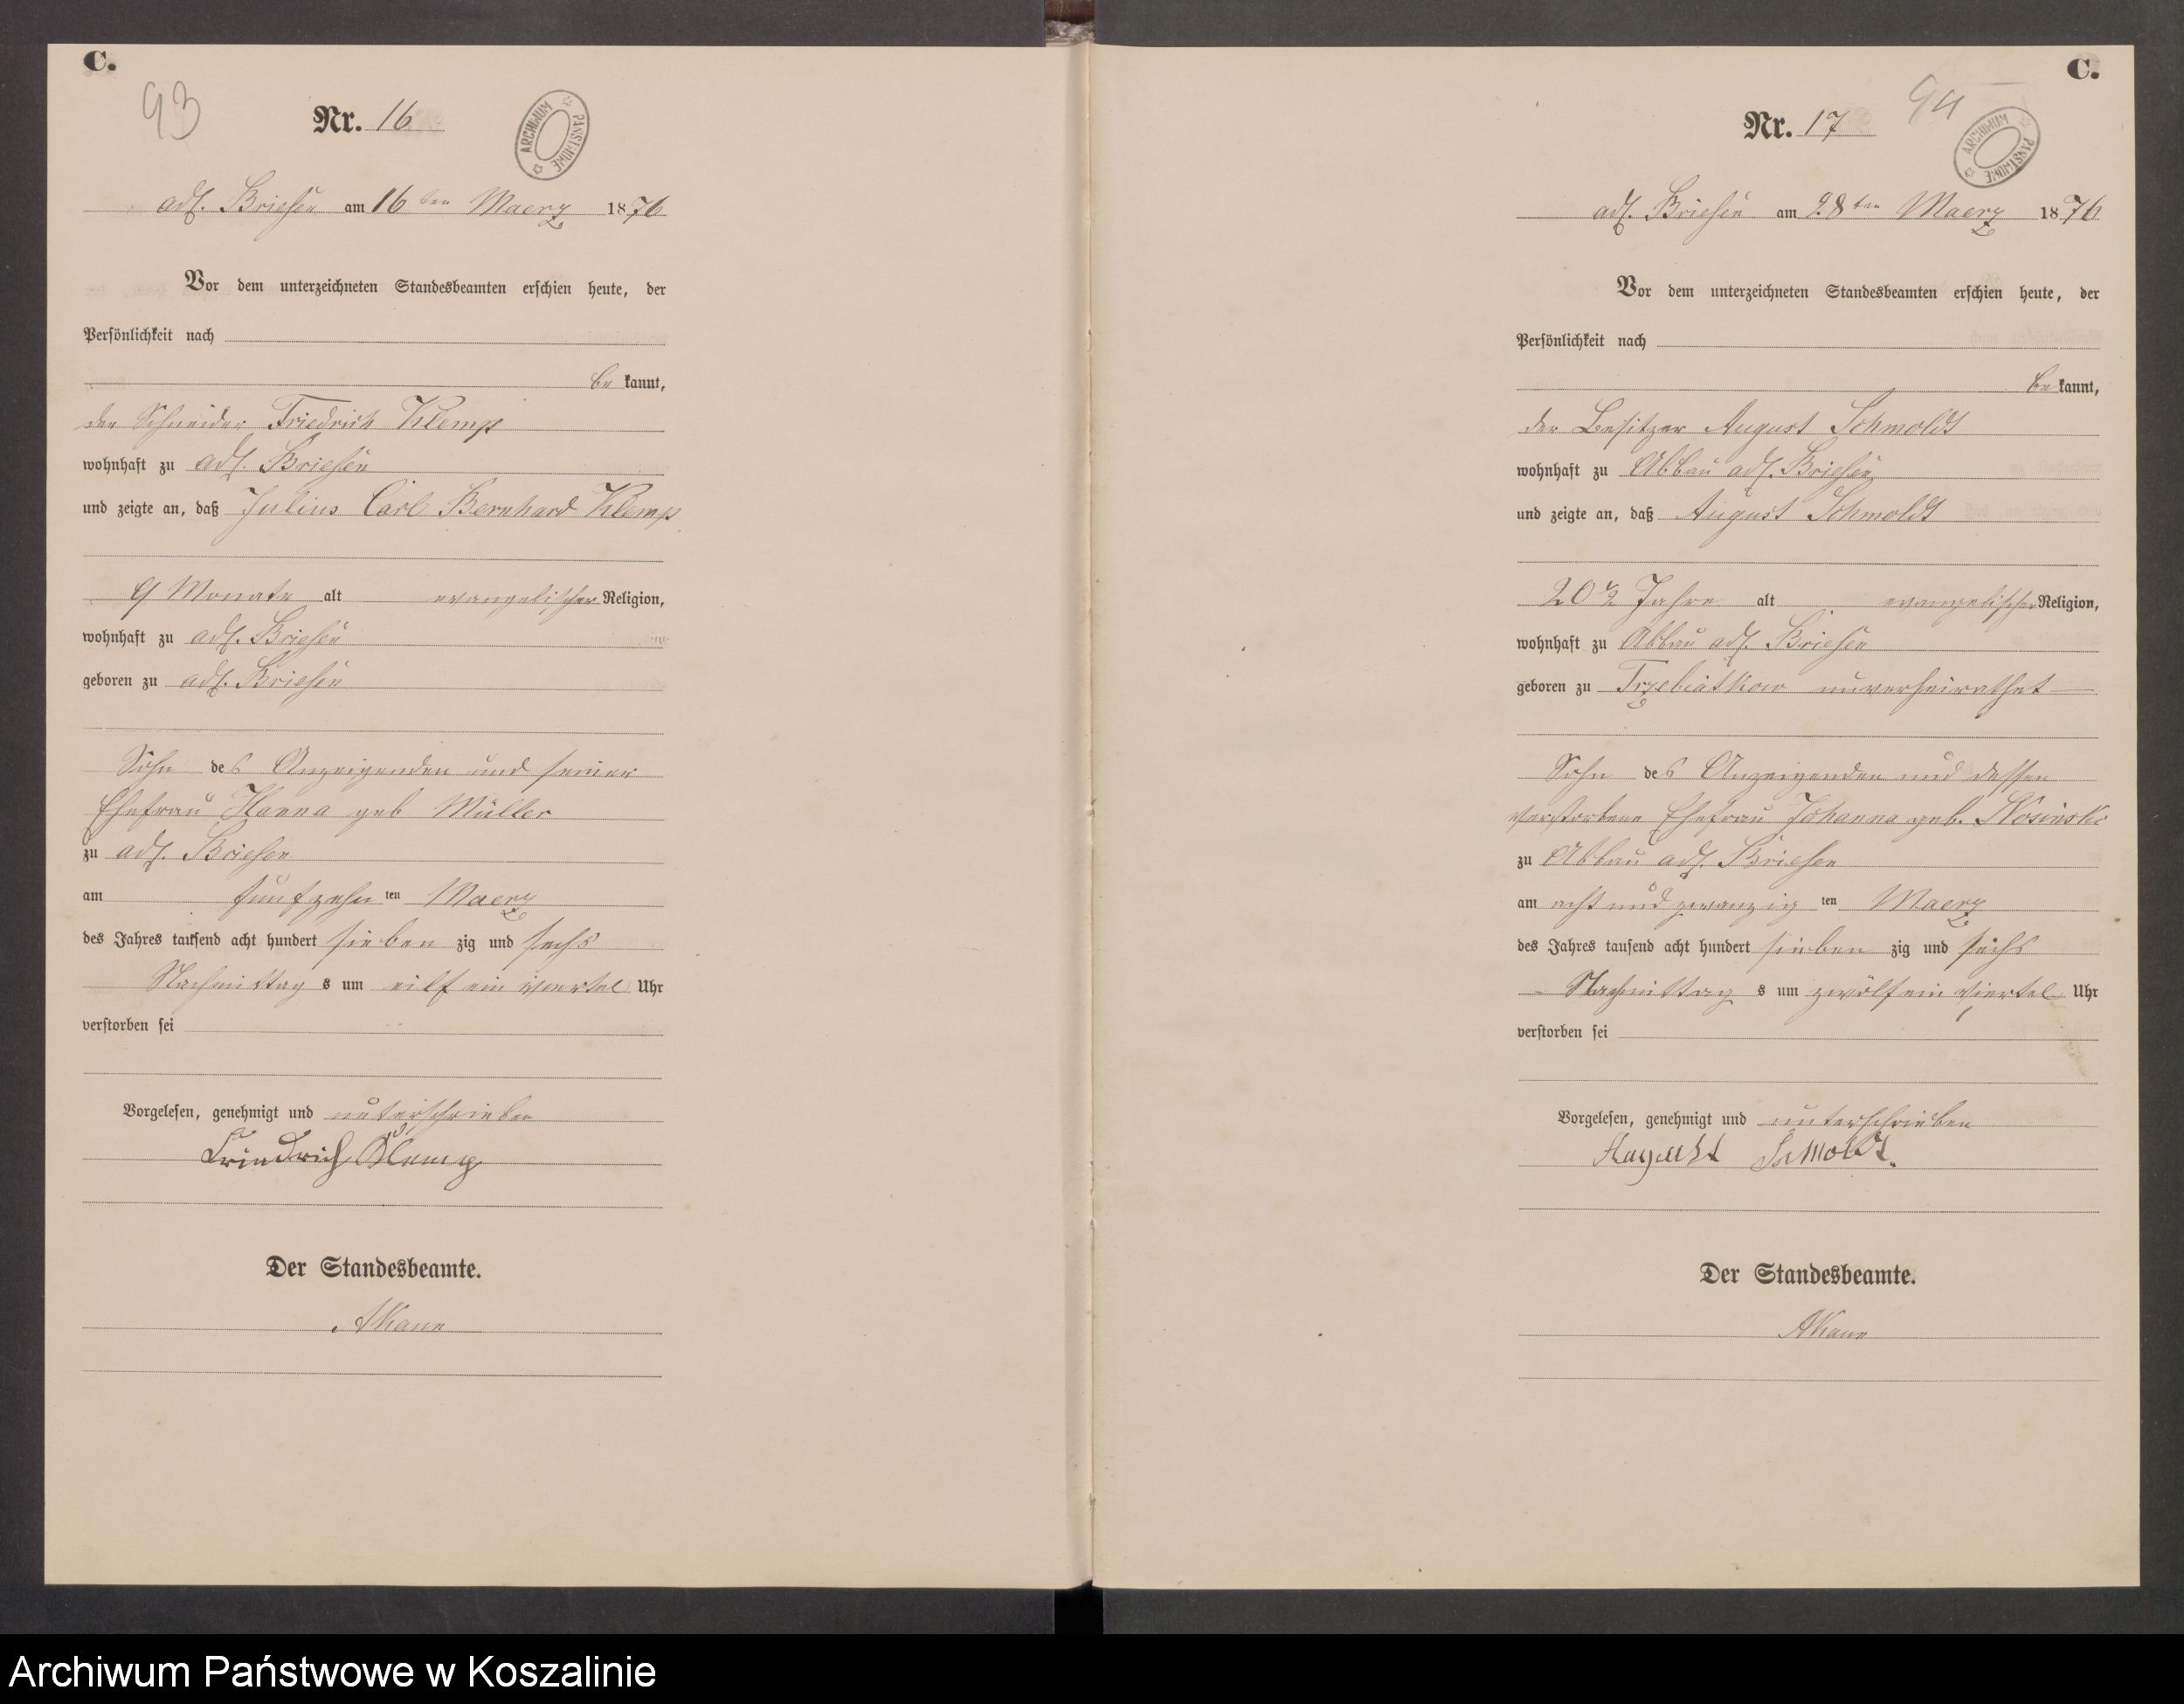 C.
93
Nr. 16
ARCHIWUM PAŃSTWOWE
adl. Briesen am 16 ten Maerz 1876
Vor dem unterzeichneten Standesbeamten erschien heute, der
Persönlichkeit nach
be kannt,
der Schneider Friedrich Klemp
wohnhaft zu adl. Briesen
und zeigte an, daß Julius Carl Bernhard Klemp
9 Monate alt evangelischer Religion,
wohnhaft zu adl. Briesen
geboren zu adl. Briesen
Sohn des Anzeigenden und seiner
Ehefrau Hanna geb Müller
zu adl. Briesen
am fünfzehn ten Maerz
des Jahres tausend acht hundert sieben zig und sechs
Nachmittag s um eilf ein viertel Uhr
verstorben sei
Vorgelesen, genehmigt und unterschrieben
Friedrich Klemp
Der Standesbeamte.
C.
94
Nr. 17
ARCHIWUM PAŃSTWOWE
adl. Briesen am 28 ten Maerz 1876
Vor dem unterzeichneten Standesbeamten erschien heute, der
Persönlichkeit nach
be kannt,
der Besitzer August Schmoldt
wohnhaft zu Abbau adl. Briesen
und zeigte an, daß August Schmoldt
20 1/2 Jahre alt evangelischer Religion,
wohnhaft zu Abbau adl. Briesen
geboren zu Trzebiatkow unverheirathet
Sohn des Anzeigenden und dessen
verstorbene Ehefrau Johanna geb.
zu Abbau adl. Briesen
am acht und zwanzig ten Maerz
des Jahres tausend acht hundert sieben zig und sechs
Nachmittag s um zwölf ein viertel Uhr
verstorben sei
Vorgelesen, genehmigt und unterschrieben
August Schmoldt.
Der Standesbeamte.
Archiwum Państwowe w Koszalinie